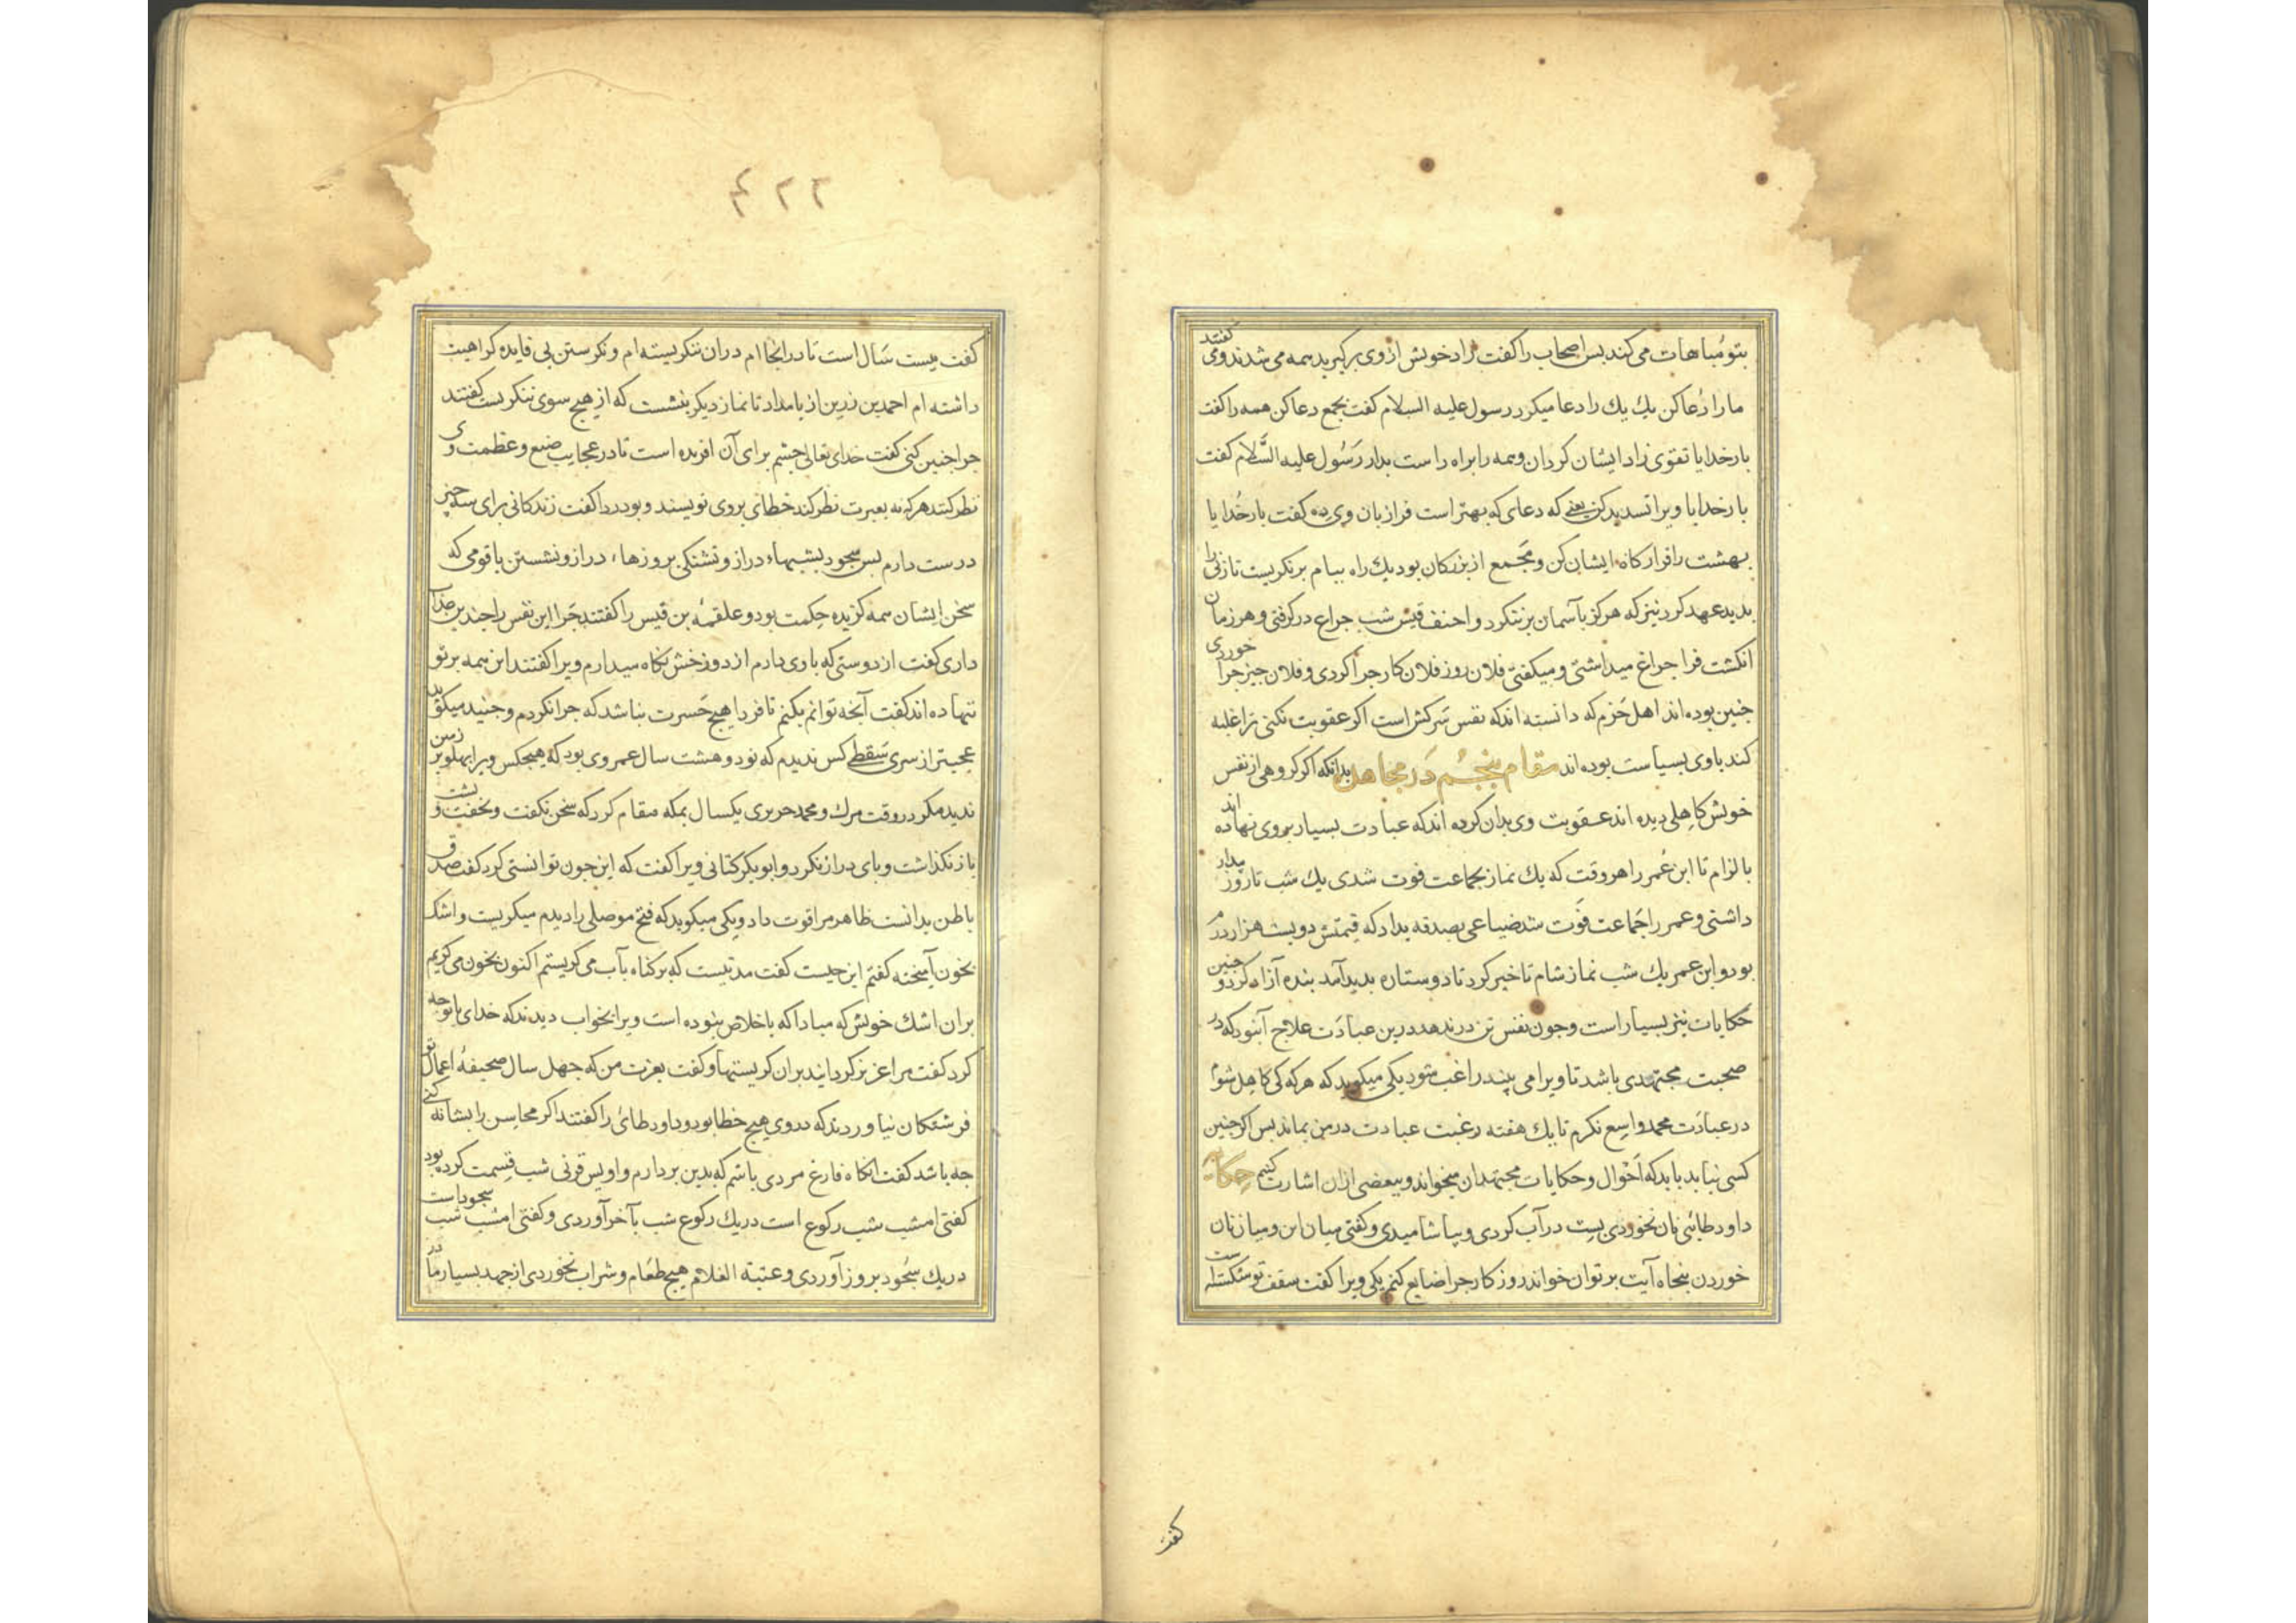 بتو مُباهات می‌کند بس اصحاب را کفت زاد خویش از وی برکیرید همه می شدند و می کفتند
ما را دُعا کن یک یک را دعا میکرد رسول علیه السلام کفت بجمع دعا کن همه را کفت
بار خدایا تقوی زاد ایشان کردان و همه را براه راست بدار رَسُول علیه السَّلام کفت
بار خدایا ویرا تسدید کن یعنی که دعای که بهتر است فرا زبان وی ده کفت بار خُدایا
بهشت را قرارکاه ایشان کن و مَجمع از بزرکان بود یک راه ببام برنکریست تا زنی را
بدید عهد کرد نیز که هرکز بآسمان برننکرد و احنف قیس شب جراغ درکرفتی و هر زمان
انکشت فرا جراغ میداشتی و میکفتی فلان روز فلان کار جرا کردی و فلان جیز جرا خوردی
جنین بوده اند اهل حَزم که دانسته اند که نفس سَرکش است اکر عقوبت نکنی ترا غلبه
کند با وی بسیاست بوده اند مقام پنجُم دَر مجاهده بدانکه اکر کروهی از نفس
خویش کاهِلی دیده اند عقوبت وی بدان کرده اند که عبادت بسیار بر وی نهاده اند
بالزام تا ابن عُمر را هر وقت که یک نماز بجماعت فوت شدی یک شب تا روز بیدار
داشتی و عمر را جَماعت فَوت شد ضیاعی بصدقه بداد که قیمتش دویست هزار درم
بود و ابن عمر یک شب نماز شام تاخیر کرد تا دو ستاره بدید آمد بنده آزاد کرد و جنین
حکایات نیز بسیار است و جون نفس تن در ندهد درین عبادَت علاج آنبود که در
صحبت مجتهدی باشد تا ویرا می بیند راغب شود یکی میکوید که هر که کی کاهِل شوم
در عبادَت محمد واسِع نکرم تا یک هفته رغبت عبادت در من بماند بس اکر جنین
کسی نیابد باید که اَحْوال و حکایات مجتهدان میخواند و ببعضی ازان اشارت کنیم حِکایة
داود طائی نان نخوردی بست در آب کردی و بیاشامیدی و کفتی میان این و میان نان
خوردن پنجاه آیت بر توان خواند روزکار جرا ضایع کنم یکی ویرا کفت سقف تو شکسته است
کفت
۴۲۲
کفت بیست سَال است تا در انجاام دران ننکریسته ام و نکرستن بی فایده کراهیت
داشته ام احمد بن زرین از بامداد تا نماز دیکر بنشست که از هیچ سوی ننکریست کفتند
جرا جنین کنی کفت خدای تعالی جشم برای آن افریده است تا در عجایب صنع و عظمت وی
نظر کنند هر که نه بعبرت نظر کند خطای بر وی نویسند و بودردا کفت زندکانی برای سه چیز
درست دارم بس سجود بشبهاء دراز و تشنکی بروزهاء دراز و نشستن با قومی که
سخن ایشان همه کزیده حِکمت بود و علقمه بن قیس را کفتند جَرا این نفس را جندین عذاب
داری کفت از دوستی که با وی دارم از دوزخش نکاه میدارم ویرا کفتند این همه بر تو
ننهاده اند کفت آنجه توانم بکنم تا فردا هیچ حَسرت نباشد که جرا نکردم و جنید میکوید
عجبتر از سری سَقطی کس ندیدم که نود و هشت سال عمر وی بود که هیچکس ویرا بهلو بر زمین
ندید مکر در وقت مرک و محمد حریری یکسال بمکه مقام کرد که سخن نکفت و نخفت و بشت
باز نکذاشت و بای دراز نکرد و ابوبکر کتانی ویرا کفت که این جون توانستی کرد کفت صدق
باطن بدانست ظاهر مرا قوت داد و یکی میکوید که فتح موصلی را دیدم میکریست و اشک
بخون آمیخته کفتم این جیست کفت مدتیست که بر کناه بآب می کریستم اکنون بخون می کریم
بران اشک خویش که مبادا که باخلاص نبوده است ویرا بخواب دیدند که خدای با تو جه
کرد کفت مرا عزیز کردانید بران کریستنها و کفت بعزت من که جهل سال صحیفهٔ اعمال تو
فرشتکان نیاوردند که در وی هیچ خطا بود و داود طائی را کفتند اکر محاسِن را بشانه کنی
جه باشد کفت انکاه فارغ مردی باشم که بدین بردازم و اویس قرنی شب قِسمت کرده بود
کفتی امشب شب رکوع است در یک رکوع شب بآخر آوردی و کفتی امشب شب سجود است
در یک سُجود بروز آوردی و عتبه الغلام هیچ طعَام و شراب نخوردی از جهد بسیار مادر